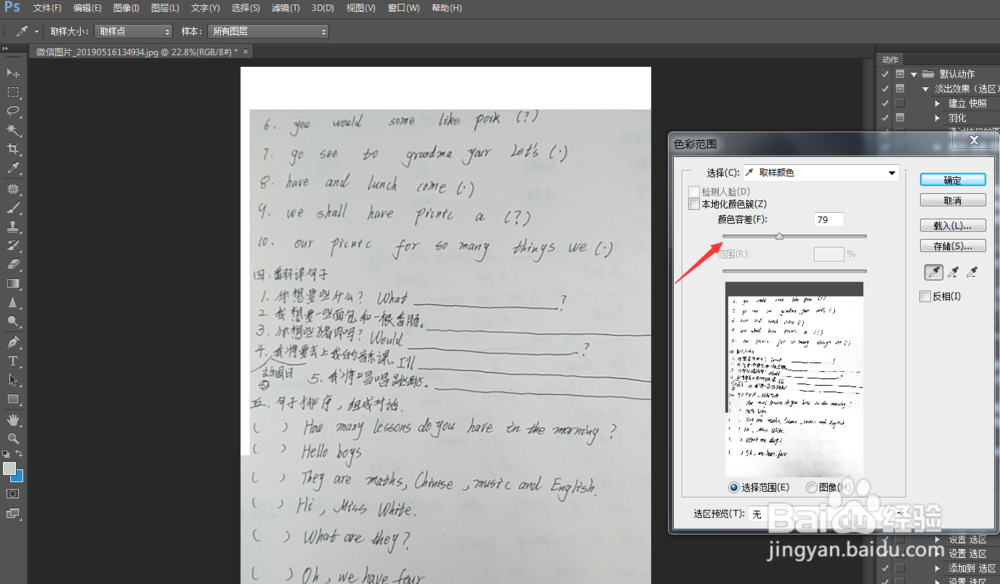 Ps 文件(F) 编辑(E) 图像(I) 图层(L) 文字(Y) 选择(S) 滤镜(T) 3D(D) 视图(V) 窗口(W) 帮助(H)
取样大小: 取样点 样本: 所有图层
微信图片_20190516134934.jpg @ 22.8%(RGB/8#) * ×
6. you would some like pork (?)
7. go see to grandma your Let's (.)
8. have and lunch come (.)
9. we shall have picnic a (?)
10. our picnic for so many things we (.)
四. 翻译句子
1. 你想要些什么? What ?
2. 我想要一些面包和一根香肠。
3. 你想些猪肉吗? Would ?
4. 我将要去上我的音乐课. I'll
5. 我将唱唱跳跳。
五. 句子排序, 组成对话.
( ) How many lessons do you have in the morning ?
( ) Hello boys
( ) They are maths, Chinese, music and English.
( ) Hi, Miss White.
( ) What are they?
( ) Oh, we have four
色彩范围
选择(C): 取样颜色
检测人脸(D)
本地化颜色簇(Z)
颜色容差(F): 79
范围(R): %
选择范围(E) 图像(M)
选区预览(T): 无
确定
取消
载入(L)...
存储(S)...
反相(I)
动作
默认动作
淡出效果（选区）
建立 快照
羽化
设置 选区
设置 选区
添加到 选区
设置 选区
Baidu 经验
jingyan.baidu.com